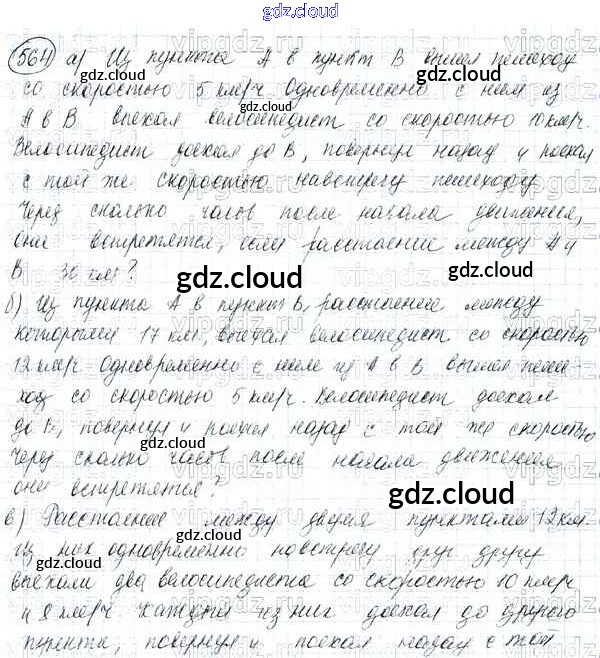 gdz.cloud
564 а) Из пункта А в пункт В вышел пешеход
со скоростью 5 км/ч. Одновременно с ним из
А в В выехал велосипедист со скоростью 10 км/ч.
Велосипедист доехал до В, повернул назад и поехал
с той же скоростью навстречу пешеходу.
Через сколько часов после начала движения,
они встретятся, если расстояние между А и
В 30 км?
б) Из пункта А в пункт В, расстояние между
которыми 17 км, выехал велосипедист со скоростью
12 км/ч. Одновременно с ним из А в В вышел пеше-
ход со скоростью 5 км/ч. Велосипедист доехал
до В, повернул и поехал назад с той же скоростью
Через сколько часов после начала движения
они встретятся?
в) Расстояние между двумя пунктами 12 км.
Из них одновременно навстречу друг другу
выехали два велосипедиста со скоростью 10 км/ч
и 8 км/ч. Каждый из них доехал до другого
пункта, повернул и поехал назад с той